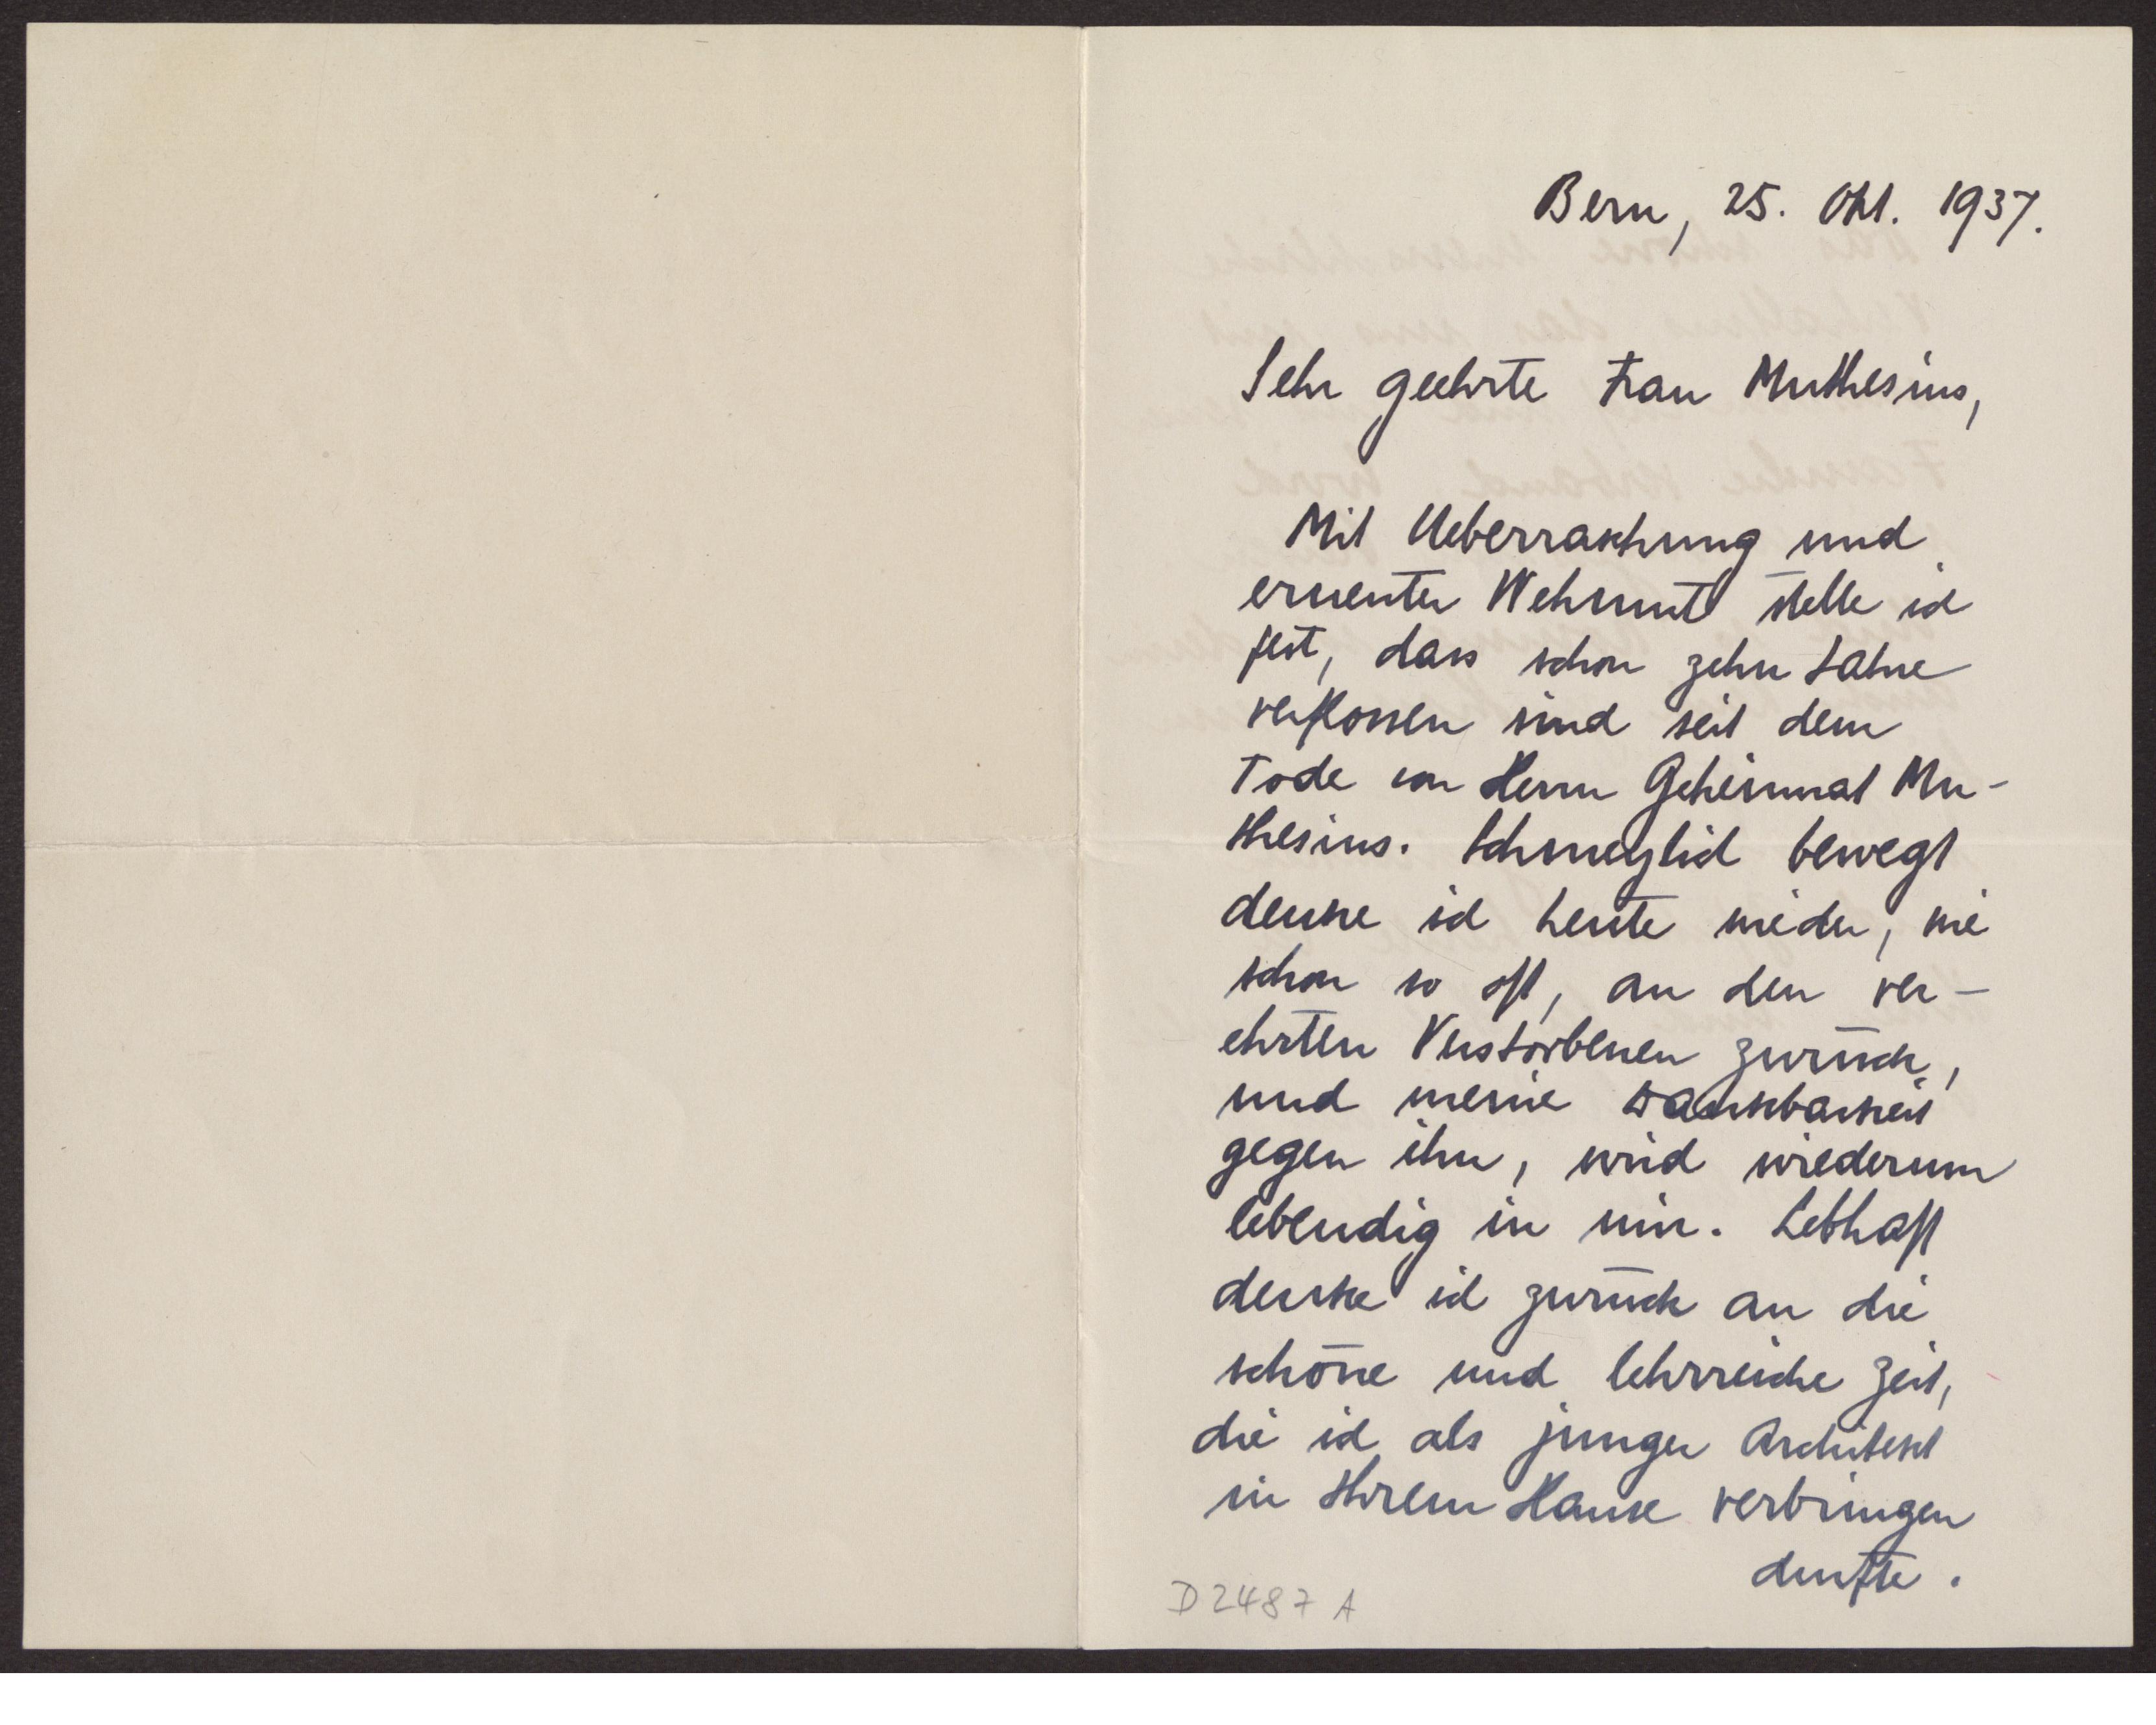 Bern, 25. Okt. 1937.
Sehr geehrte Frau Muthesius,
Mit Ueberraschung und
erneuter Wehmut stelle ich
fest, dass schon zehn Jahre
verflossen sind seit dem
Tode von Herrn Geheimrat Mu-
thesius. Schmerzlich bewegt
denke ich heute wieder, wie
schon so oft, an den ver-
ehrten Verstorbenen zurück,
und meine Dankbarkeit
gegen ihn, wird wiederum
lebendig in mir. Lebhaft
denke ich zurück an die
schöne und lehrreiche Zeit,
die ich als junger Architekt
in Ihrem Hause verbringen
durfte.
D 2487 A